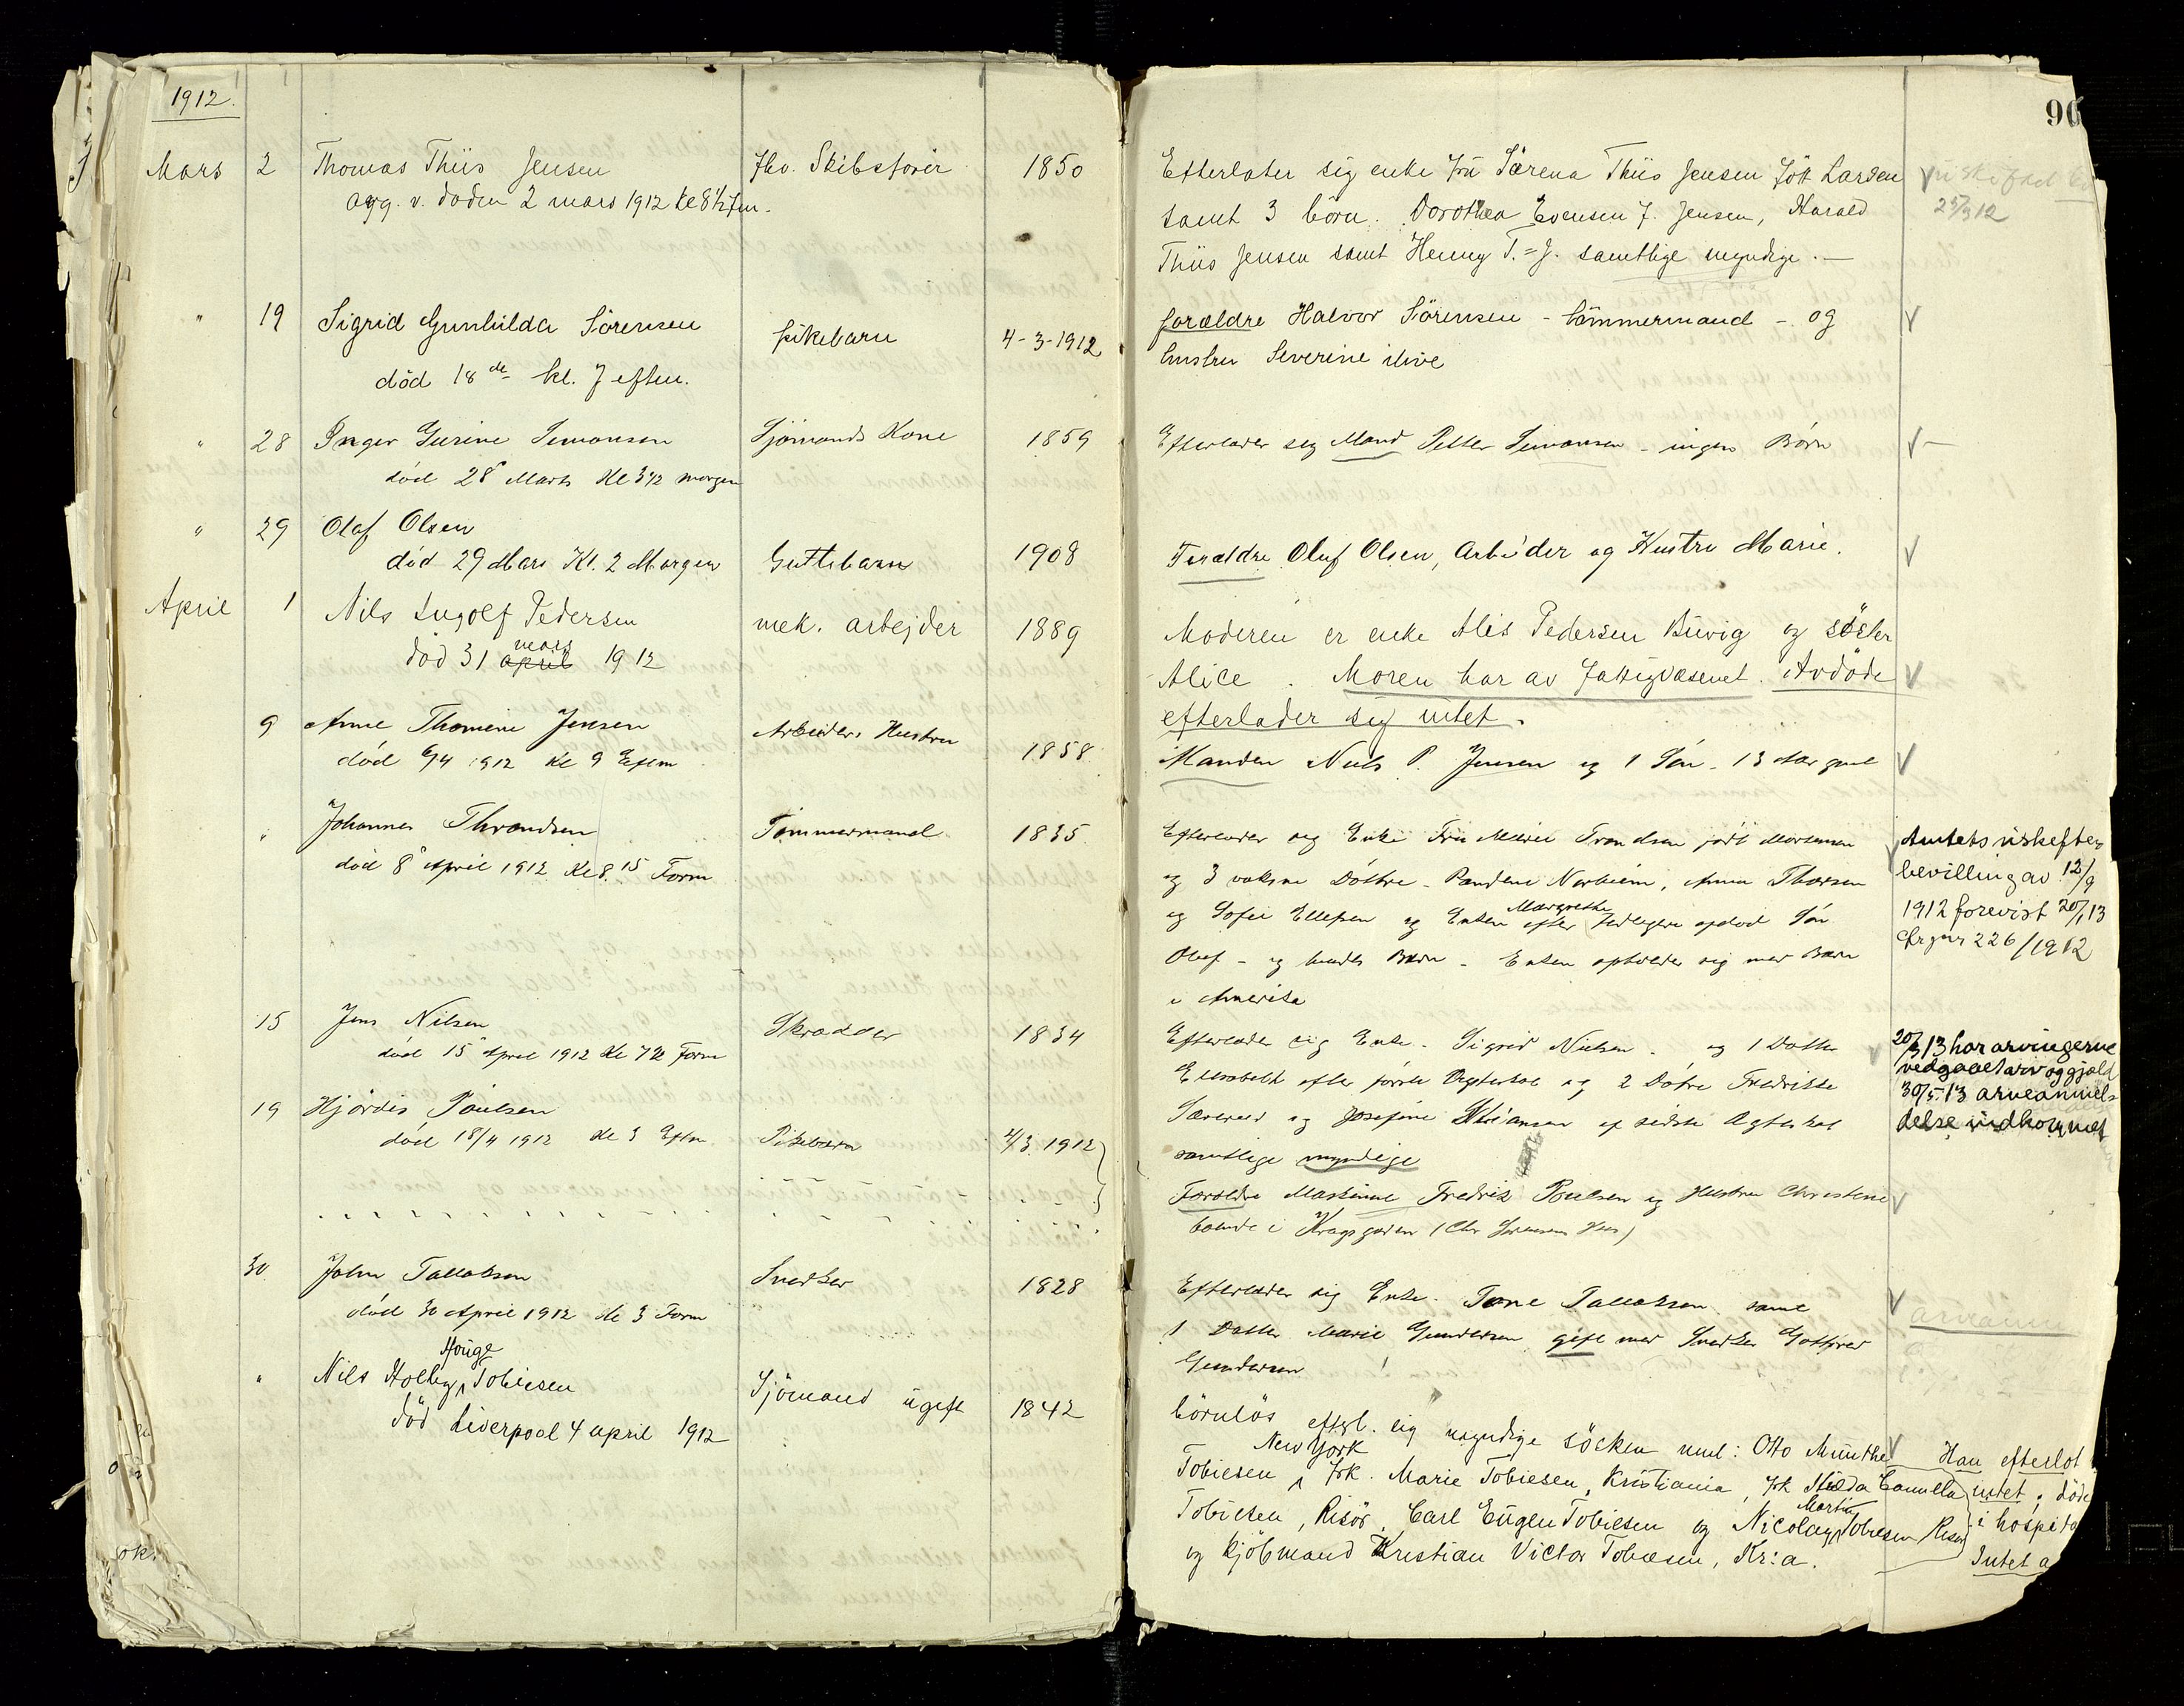 1912.
96
Mars 2 Thomas Thiis Jensen fhv. Skibsfører 1850
avg. v. døden 2 mars 1912 kl 8 1/2 fm.
Efterlater sig enke fru Särena Thiis Jensen født Larsen
samt 3 börn. Dorothea Evensen f. Jensen, Harald
Thiis Jensen samt Henny T.=J. samtlige myndige. —
25/3 12
" 19 Sigrid Gunhilda Sörensen pikebarn 4-3-1912
död 18de kl. 7 eftm.
forældre Halvor Sörensen - tömmermand - og
hustru Severine ilive
" 28 Inger Gurine Simonsen Sjømands Kone 1859
död 28 Marts Kl 3 1/2 morgen
Efterlader sig Mand Petter Simonsen - ingen Børn
" 29 Olaf Olsen
död 29 Mars Kl. 2 Morgen Guttebarn 1908
Forældre Oluf Olsen, Arbeider og Hustru Marie.
April 1 Nils Ingolf Pedersen mek. arbejder 1889
mars
död 31 april 1912
Moderen er enke Alis Pedersen Buvig og söster
Alice. Moren har av fattigvæsenet. Avdöde
efterlader sig intet.
9 Anne Thomine Jensen Arbeiders Hustru 1858
död 6/4 1912 Kl 9 Eftm
Manden Niels P. Jensen og 1 Sön - 13 Aar gml
" Johannes Throndsen Tömmermand 1835
död 8 April 1912 Kl 8.15 Form
Efterlader sig Enke Fru Marie Trondsen født Mortensen
og 3 voksne Döttre - Pandine Norheim, Anna Thorsen
Margrethe
og Sofie Ellefsen og Enken efter tidligere afdød Sön
Oluf - og hendes Børn - Enken opholder sig med Børn
i Amerika
Amtets uskifte
bevilling av 12/9
1912 forevist 20/1 13
cfr jnr 226/1912
15 Jens Nilsen Skrædder 1834
död 15 April 1912 Kl 7 1/2 Form
Efterlader sig Enke - Sigrid Nielsen - og 1 Datter
Elisabeth efter første Ægteskab og 2 Døtre Fredrikke
og Josefine af sidste Ægteskab
samtlige myndige
13 har arvingerne
vedgaaet arv og gjæld
30/5 13 arveanmel-
delse indkommet
19 Hjördis Paulsen
död 18/4 1912 Kl 3 Eftm Pikebarn 4/3 1912
Forældre Maskinist Fredrik Poulsen og Hustru Christine
boende i Kragsgaden (Chr Sörensen Hus)
30 John Tallaksen Snedker 1828
död 30 April 1912 Kl 3 Form
Efterlader sig Enke - Tone Tallaksen samt
1 Datter Marie Gundersen gift med Snedker Gotfred
Gundersen
Houge
" Nils Holby Tobiesen Sjömand ugift 1842
död Liverpool 4 april 1912
börnlös efterl. sig myndige söcken nml: Otto Munthe
New York
Tobiesen, frk. Marie Tobiesen, Kristiania, frk Hilda Camilla
Martin
Tobiesen, Risör, Carl Eugen Tobiesen og Nicolay Tobiesen Risör
og Kjöbmand Kristian Victor Tobiesen, Kr:a.
Han efterlot
intet, døde
i hospita
Intet a